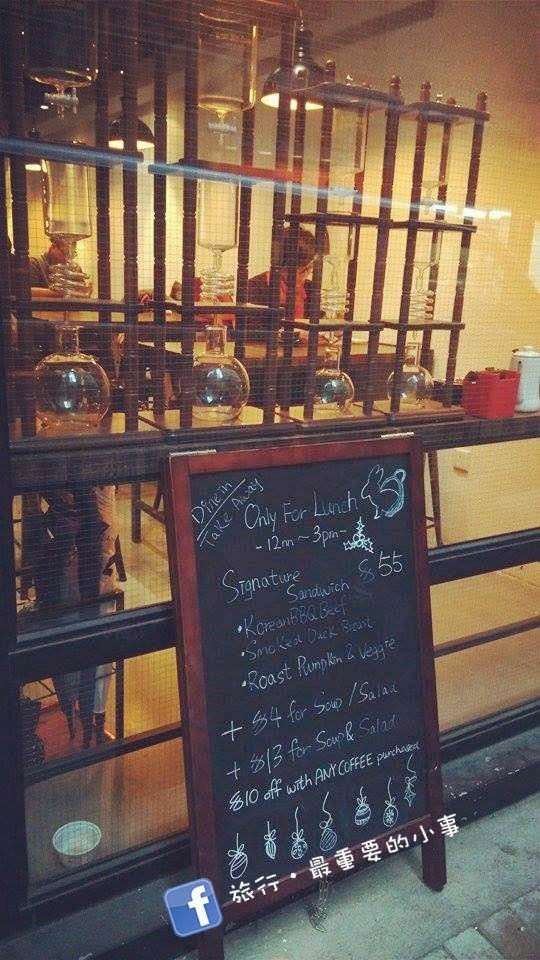 Dinein
Take Away
Only For Lunch
-12nn～3pm-
Signature $55
Sandwich
•Korean BBQ Beef
•Smoked Duck Breast
•Roast Pumpkin & Veggie
+ $4 for Soup/Salad
+ $13 for Soup & Salad
$10 off with ANY COFFEE purchased
f 旅行·最重要的小事